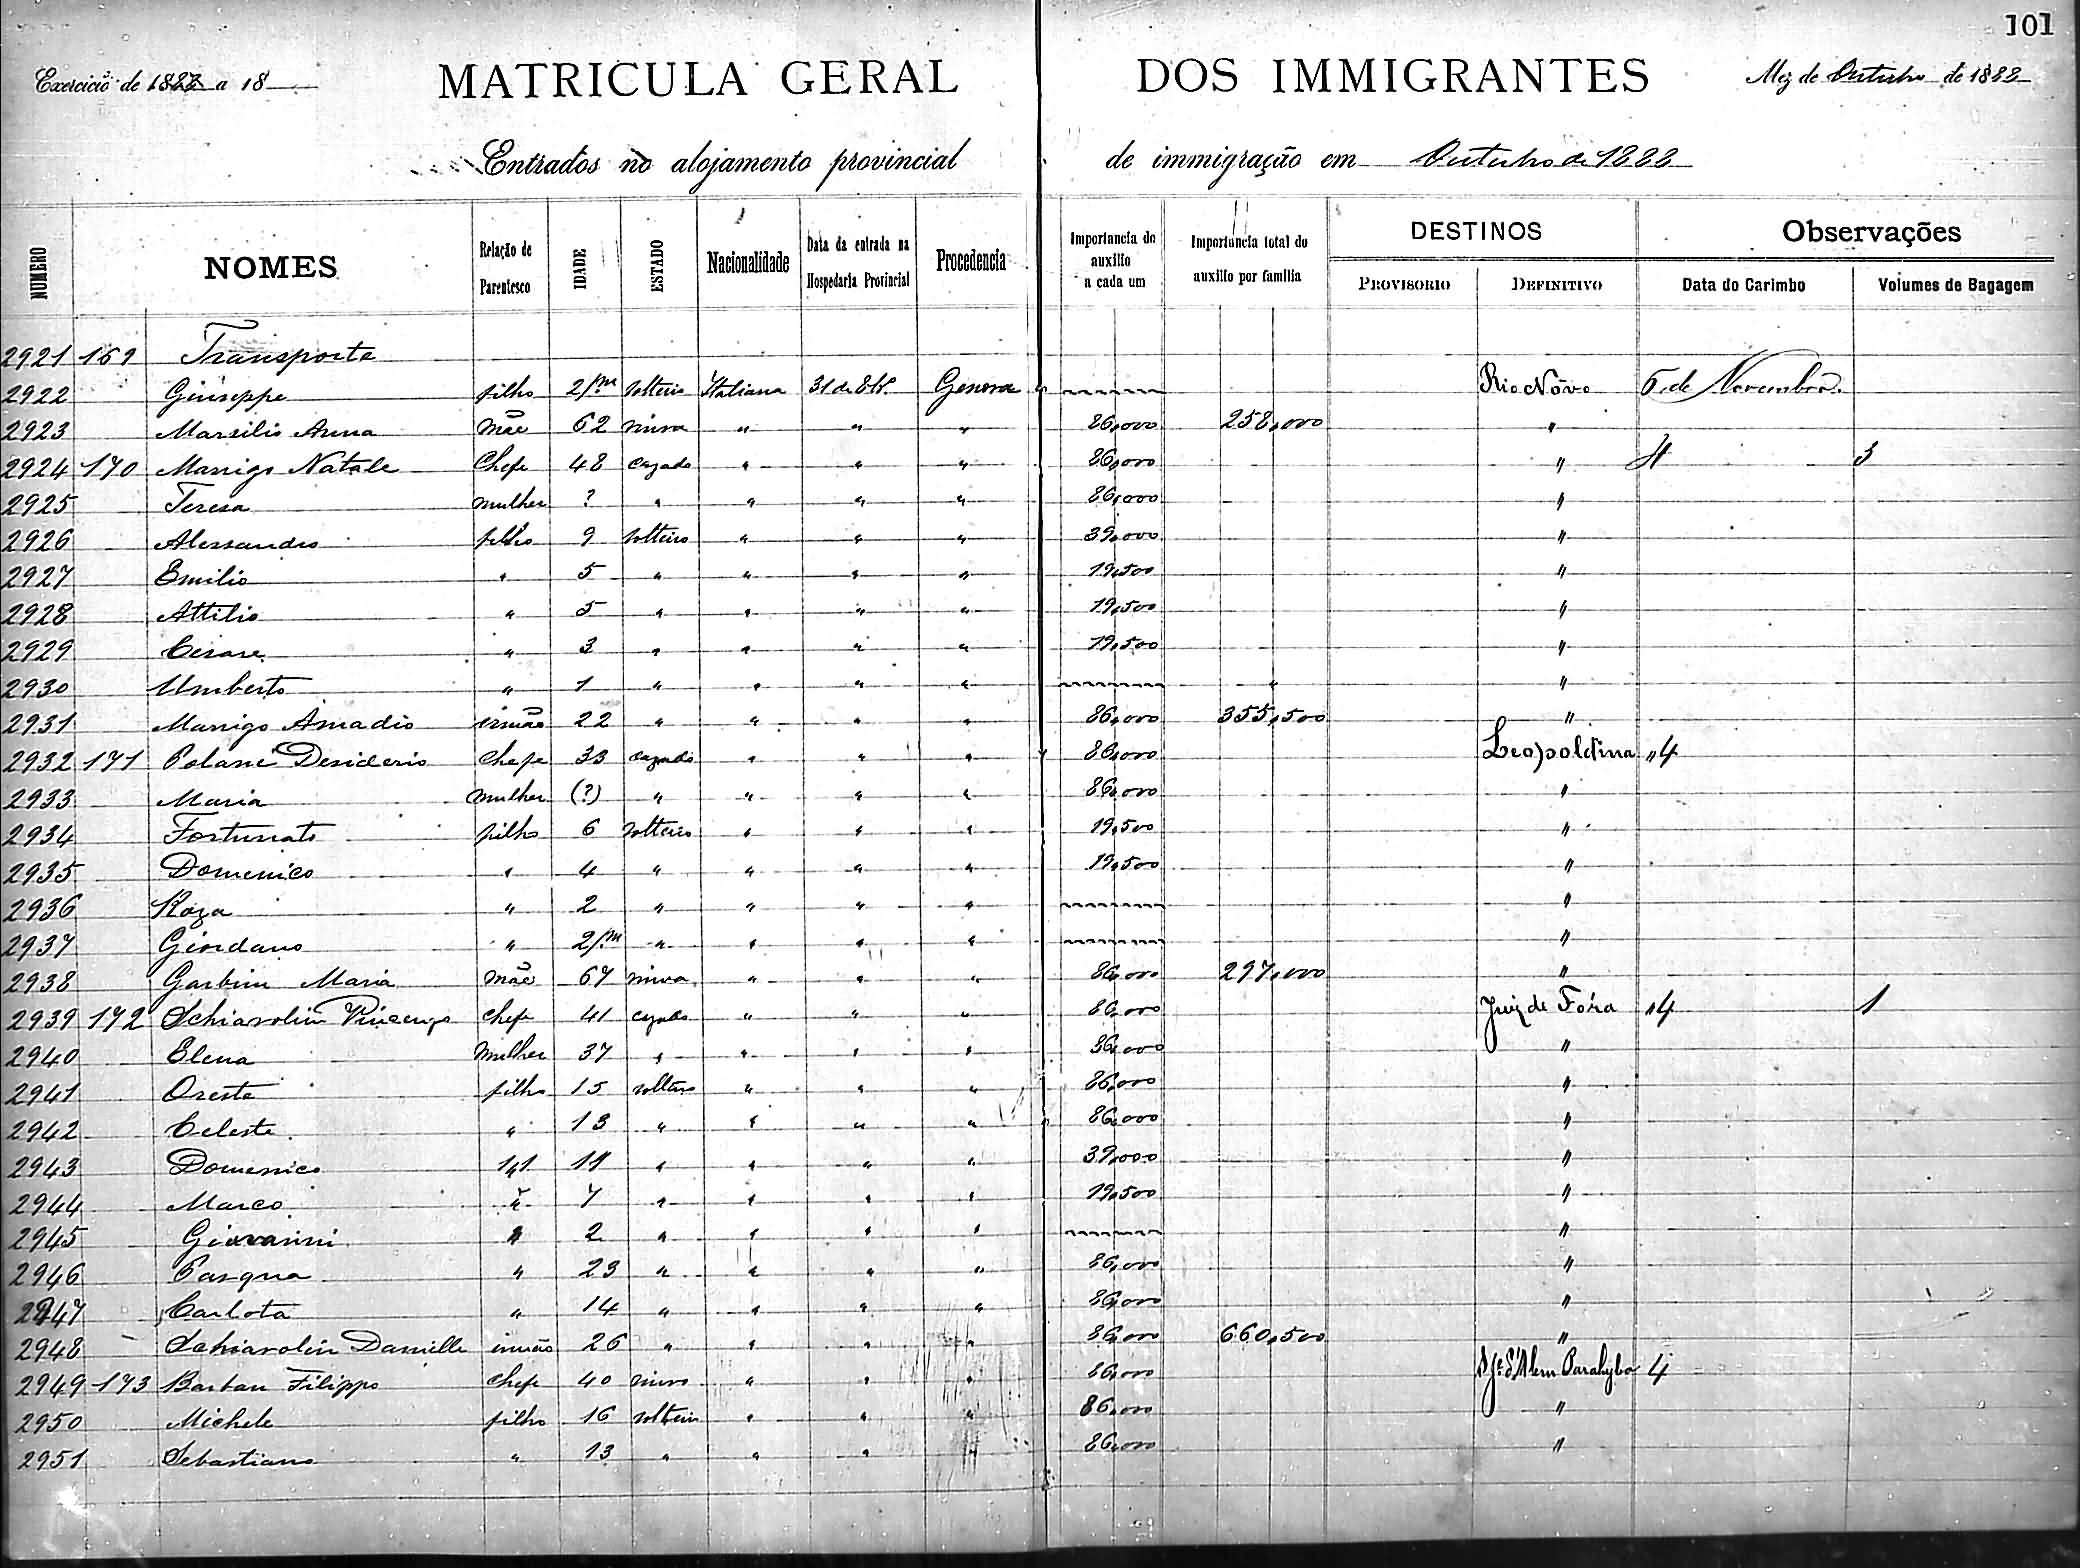 101
Exercicio de 1888 a 18
MATRICULA GERAL DOS IMMIGRANTES
Mez de Outubro de 1888
Entrados no alojamento provincial de immigração em Outubro de 1888
NUMERO NOMES Relação de Parentesco IDADE ESTADO Nacionalidade Data da entrada na Hospedaria Provincial Procedencia Importancia do auxilio a cada um Importancia total do auxilio por familia DESTINOS PROVISORIO DEFINITIVO Observações Data do Carimbo Volumes de Bagagem
2921 169 Transporte
2922 Giuseppe filho 2/m solteiro Italiana 31 de 8bro Genova Rio Novo 5 de Novembro
2923 Marsilio Anna mãe 62 viuva " " " 86,000 258,000 "
2924 170 Marrigo Natale Chefe 48 cazado " " " 86,000 " 4 3
2925 Teresa mulher ? " " " " 86,000 "
2926 Alessandro filho 9 solteiro " " " 39,000 "
2927 Emilio " 5 " " " " 19,500 "
2928 Attilio " 5 " " " " 19,500 "
2929 Cesare " 3 " " " " 19,500 "
2930 Umberto " 1 " " " " " "
2931 Marrigo Amadio irmão 22 " " " " 86,000 355,500 "
2932 171 Polane Desiderio Chefe 33 cazado " " " 86,000 Leopoldina " 4
2933 Maria mulher (?) " " " " 86,000 "
2934 Fortunato filho 6 solteiro " " " 19,500 "
2935 Domenico " 4 " " " " 19,500 "
2936 Roza " 2 " " " " "
2937 Giordano " 2/m " " " " "
2938 Garbin Maria mãe 67 viuva " " " 86,000 297,000 "
2939 172 Schiavolin Vincenzo chefe 41 cazado " " " 86,000 Juiz de Fóra " 4 1
2940 Elena mulher 37 " " " " 86,000 "
2941 Oreste filho 15 solteiro " " " 86,000 "
2942 Celeste " 13 " " " " 86,000 "
2943 Domenico " 11 " " " " 39,000 "
2944 Marco " 7 " " " " 19,500 "
2945 Giovanni " 2 " " " " "
2946 Pasqua " 23 " " " " 86,000 "
2947 Carlota " 14 " " " " 86,000 "
2948 Schiavolin Danielle irmão 26 " " " " 86,000 660,500 "
2949 173 Barban Filippo chefe 40 viuvo " " " 86,000 S. Je. d'Alem Parahyba 4
2950 Michele filho 16 solteiro " " " 86,000 "
2951 Sebastiano " 13 " " " " 86,000 "